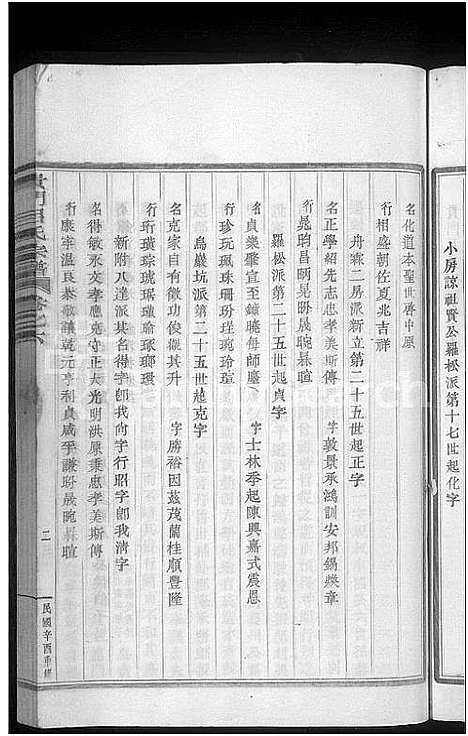 小房諒祖賢公羅松派第十七世起化字
名化道本聖世啓中原
行相盛朝佐夏兆吉祥
舟霖二房派新立第二十五世起正字
名正學紹先志忠孝美斯傳 字敦景承鴻訓安邦錫燦章
行晃昀昌昞晃昐晟晼晷暄
羅松派第二十五世起貞字
名貞樂肇宣至鐘曉每師塵 字士林季起陳興嘉式震恩
行珍玩珮珠珊玢瑾琬玲瑄
烏巖坑派第二十五世起克字
名克家自有徵微功俊揚其升 字勝裕因茲茂蘭桂順豐隆
行珩璜琮琥琚瓊瑜琢瑯環
新附八達派某名得字卽我尚字行昭字卽我清字
名得敏承文孝應克守正大光明洪原秉忠孝美斯傳
行康宇溫良恭敬讓乾元亨利貞咸孚謙昐晟晼晷暄
二
民國辛酉重修